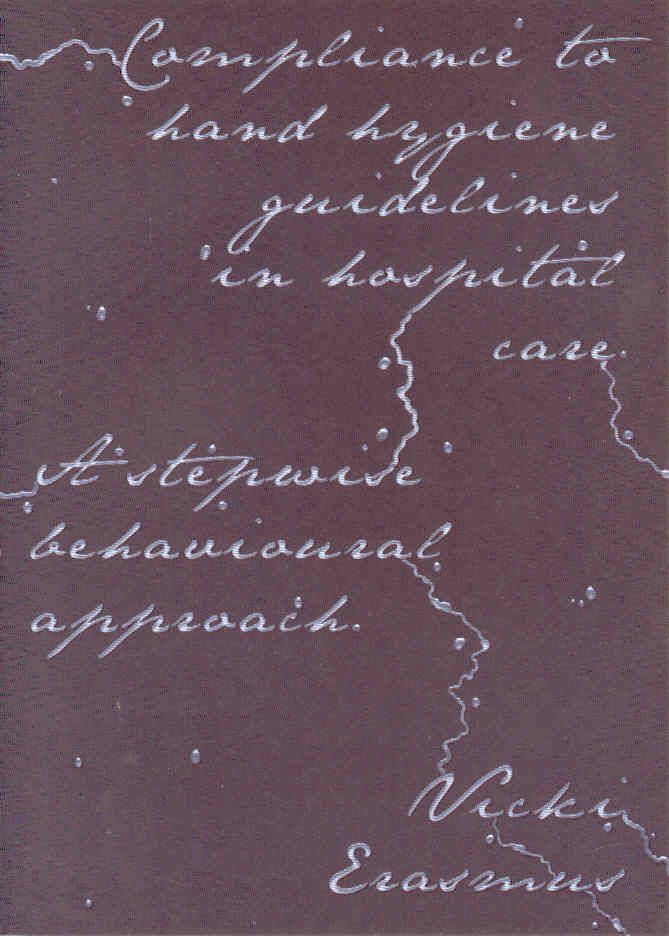 Compliance to
hand hygiene
guidelines
in hospital
care.
A stepwise
behavioural
approach.
Vicki
Erasmus